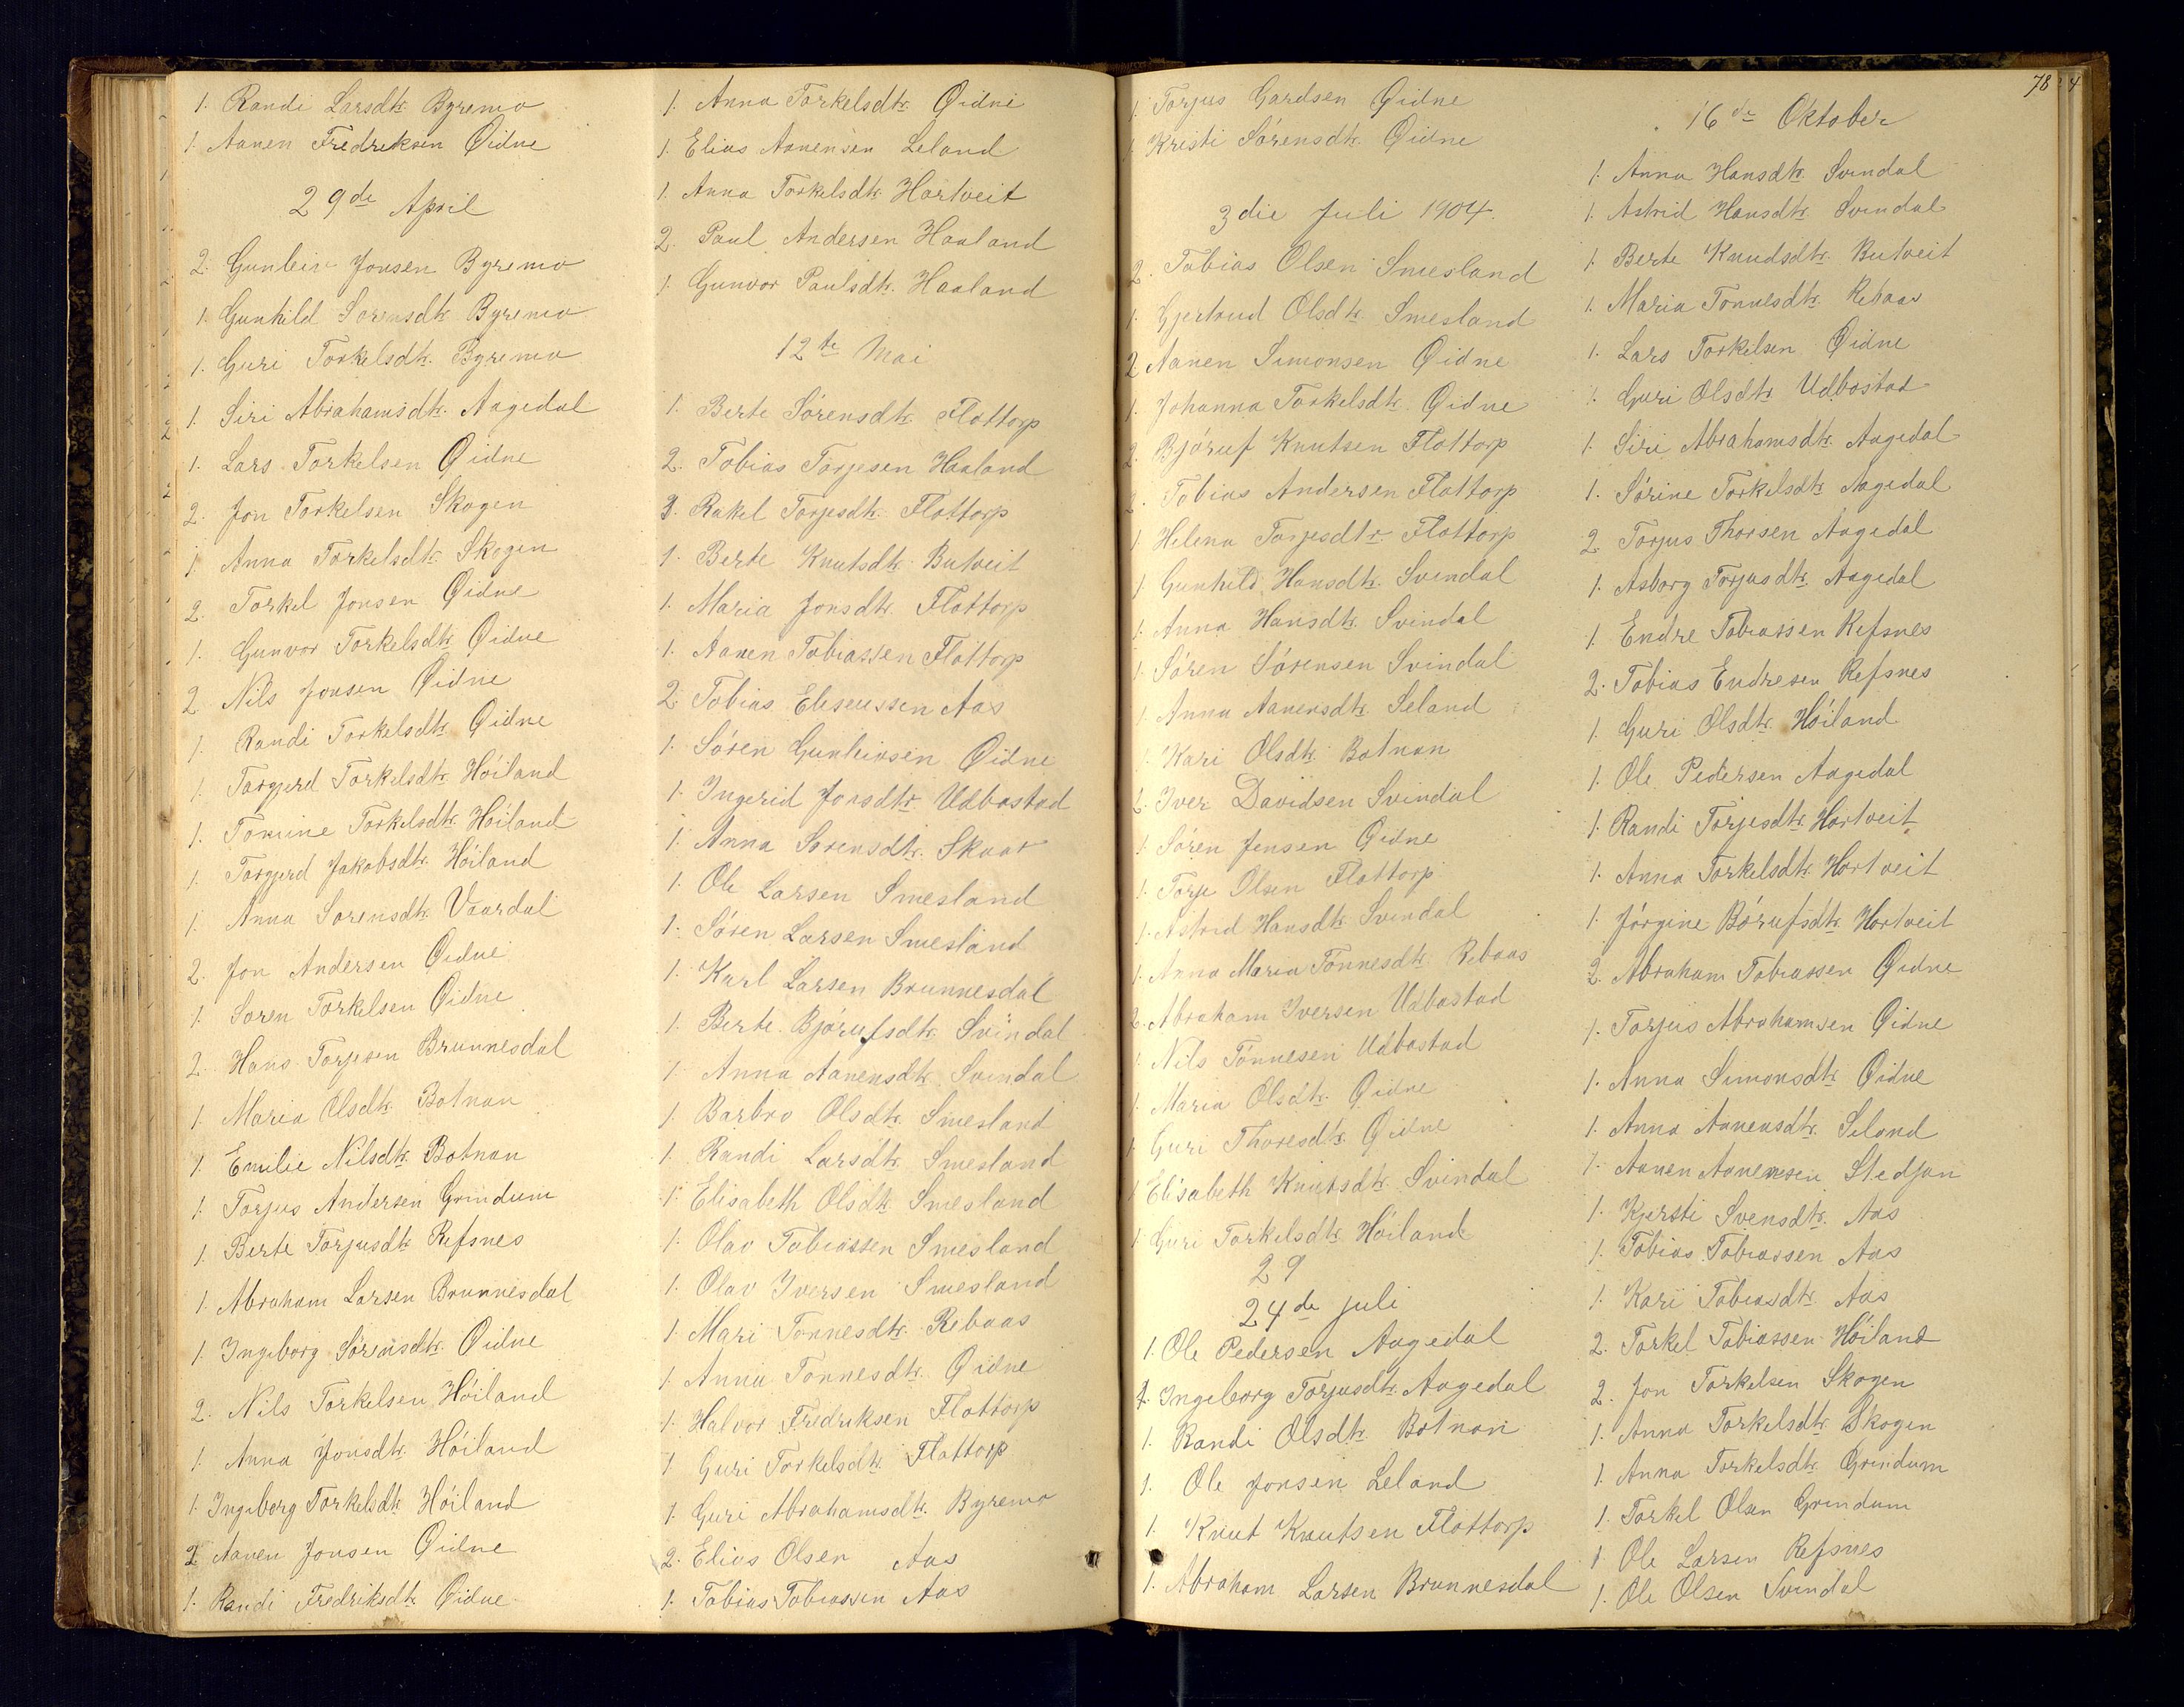 1. Randi Larsdtr. Byremo
1. Aanen Fredreksen Øidne
29de April
2. Gunleiv Jonsen Byremo
1. Gunhild Sørensdtr. Byremo
1. Guri Torkelsdtr. Byremo
1. Siri Abrahamsdtr. Aagedal
1. Lars Torkelsen Øidne
2. Jon Torkelsen Skogen
1. Anna Torkelsdtr. Skogen
2. Torkel Jonsen Øidne
1. Gunvor Torkelsdtr. Øidne
2 Nils Jonsen Øidne
1. Randi Torkelsdtr. Øidne
1. Torgjerd Torkelsdtr. Høiland
1. Tomine Torkelsdtr. Høiland
1. Torgjerd Jakobsdtr. Høiland
1. Anna Sørensdtr. Vaardal
2. Jon Andersen Øidne
1. Søren Torkelsen Øidne
2. Hans Torjesen Brunnesdal
1. Maria Olsdtr. Botnan
1. Emilie Nilsdtr. Botnan
1. Torjus Andersen Grindum
1. Berte Torjusdtr. Refsnes
1. Abraham Larsen Brunnesdal
1. Ingeborg Sørensdtr. Øidne
2. Nils Torkelsen Høiland
1. Anna Jonsdtr. Høiland
1. Ingeborg Torkelsdtr. Høiland
2 Aanen Jonsen Øidne
1. Randi Fredriksdtr. Øidne
1. Anna Torkelsdtr. Øidne
1. Elias Aanensen Leland
1. Anna Torkelsdtr. Hortveit
2. Paul Andersen Haaland
1. Gunvor Paulsdtr. Haaland
12te Mai
1. Berte Sørensdtr. Flottorp
2. Tobias Torjesen Haaland
3. Rakel Torjesdtr. Flottorp
1. Berte Knutsdtr. Butveit
1. Maria Jonsdtr. Flottorp
1. Aanen Tobiassen Flottorp
2. Tobias Eliseussen Aas
1. Søren Gunleivsen Øidne
1. Ingerid Jonsdtr. Udbostad
1. Anna Sørensdtr. Skaar
1. Ole Larsen Smesland
1. Søren Larsen Smesland
1. Karl Larsen Brunnesdal
1. Berte Bjørufsdtr. Svindal
1. Anna Aanensdtr. Svindal
1. Barbro Olsdtr. Smesland
1. Randi Larsdtr. Smesland
1. Elisabeth Olsdtr. Smesland
1. Olav Tobiassen Smesland
1. Olav Iversen Smesland
1. Mari Tønnesdtr. Rebaas
1. Anna Tønnesdtr. Øidne
1. Halvor Fredriksen Flottorp
1. Guri Torkelsdtr. Flottorp
1. Guri Abrahamsdtr. Byremo
2. Elias Olsen Aas
1. Tobias Tobiassen Aas
1 Torjus Gardsen Øidne
1 Kristi Sørensdtr. Øidne
3die Juli 1904.
2. Tobias Olsen Smesland
1. Gjertrud Olsdtr. Smesland
2 Aanen Simonsen Øidne
1. Johanna Torkelsdtr. Øidne
2. Bjøruf Knutsen Flottorp
2. Tobias Andersen Flottorp
1 Helena Torjesdtr. Flottorp
1 Gunhild Hansdtr. Svindal
1. Anna Hansdtr. Svindal
1 Søren Sørensen Svindal
1 Anna Aanensdtr. Seland
1 Kari Olsdtr. Botnan
2. Iver Davidsen Svindal
1 Søren Jensen Øidne
1. Torje Olsen Flottorp
1. Astrid Hansdtr. Svindal
1. Anna Maria Tønnesdtr. Rebaas
2. Abraham Iversen Udbostad
1 Nils Tønnesen Udbostad
1 Maria Olsdtr. Øidne
1 Guri Thoresdtr. Øidne
1 Elisabeth Knutsdtr. Svindal
1 Guri Torkelsdtr. Høiland
29
24de juli
1. Ole Pedersen Aagedal
1. Ingeborg Torjusdtr. Aagedal
1. Randi Olsdtr. Botnan
1. Ole Jonsen Leland
1. Knut Knutsen Flottorp
1. Abraham Larsen Brunnesdal
78
4
16de Oktober
1. Anna Hansdtr. Svindal
1. Astrid Hansdtr. Svindal
1. Berte Knudsdtr. Butveit
1. Maria Tønnesdtr. Rebaas
1. Lars Torkilsen Øidne
1. Guri Olsdtr. Udbostad
1. Siri Abrahamsdtr. Aagedal
1. Sørine Torkelsdtr. Aagedal
2. Torjus Thorsen Aagedal
1. Asborg Torjusdtr. Aagedal
1. Endre Tobiassen Refsnes
2. Tobias Endresen Refsnes
1. Guri Olsdtr. Høiland
1. Ole Pedersen Aagedal
1. Randi Torjesdtr. Hortveit
1. Anna Torkelsdtr. Hortveit
1. Jørgine Børufsdtr. Hortveit
2. Abraham Tobiassen Øidne
1. Torjus Abrahamsen Øidne
1. Anna Simonsdtr. Øidne
1. Anna Aanensdtr. Seland
1. Aanen Aanensen Stedjan
1. Kjersti Svensdtr. Aas
1. Tobias Tobiassen Aas
1. Kari Tobiasdtr. Aas
2. Torkel Tobiassen Høiland
2. Jon Torkelsen Skogen
1. Anna Torkelsdtr. Skogen
1. Anna Torkelsdtr. Grindum
1. Torkel Olsen Grindum
1 Ole Larsen Refsnes
1. Ole Olsen Svindal